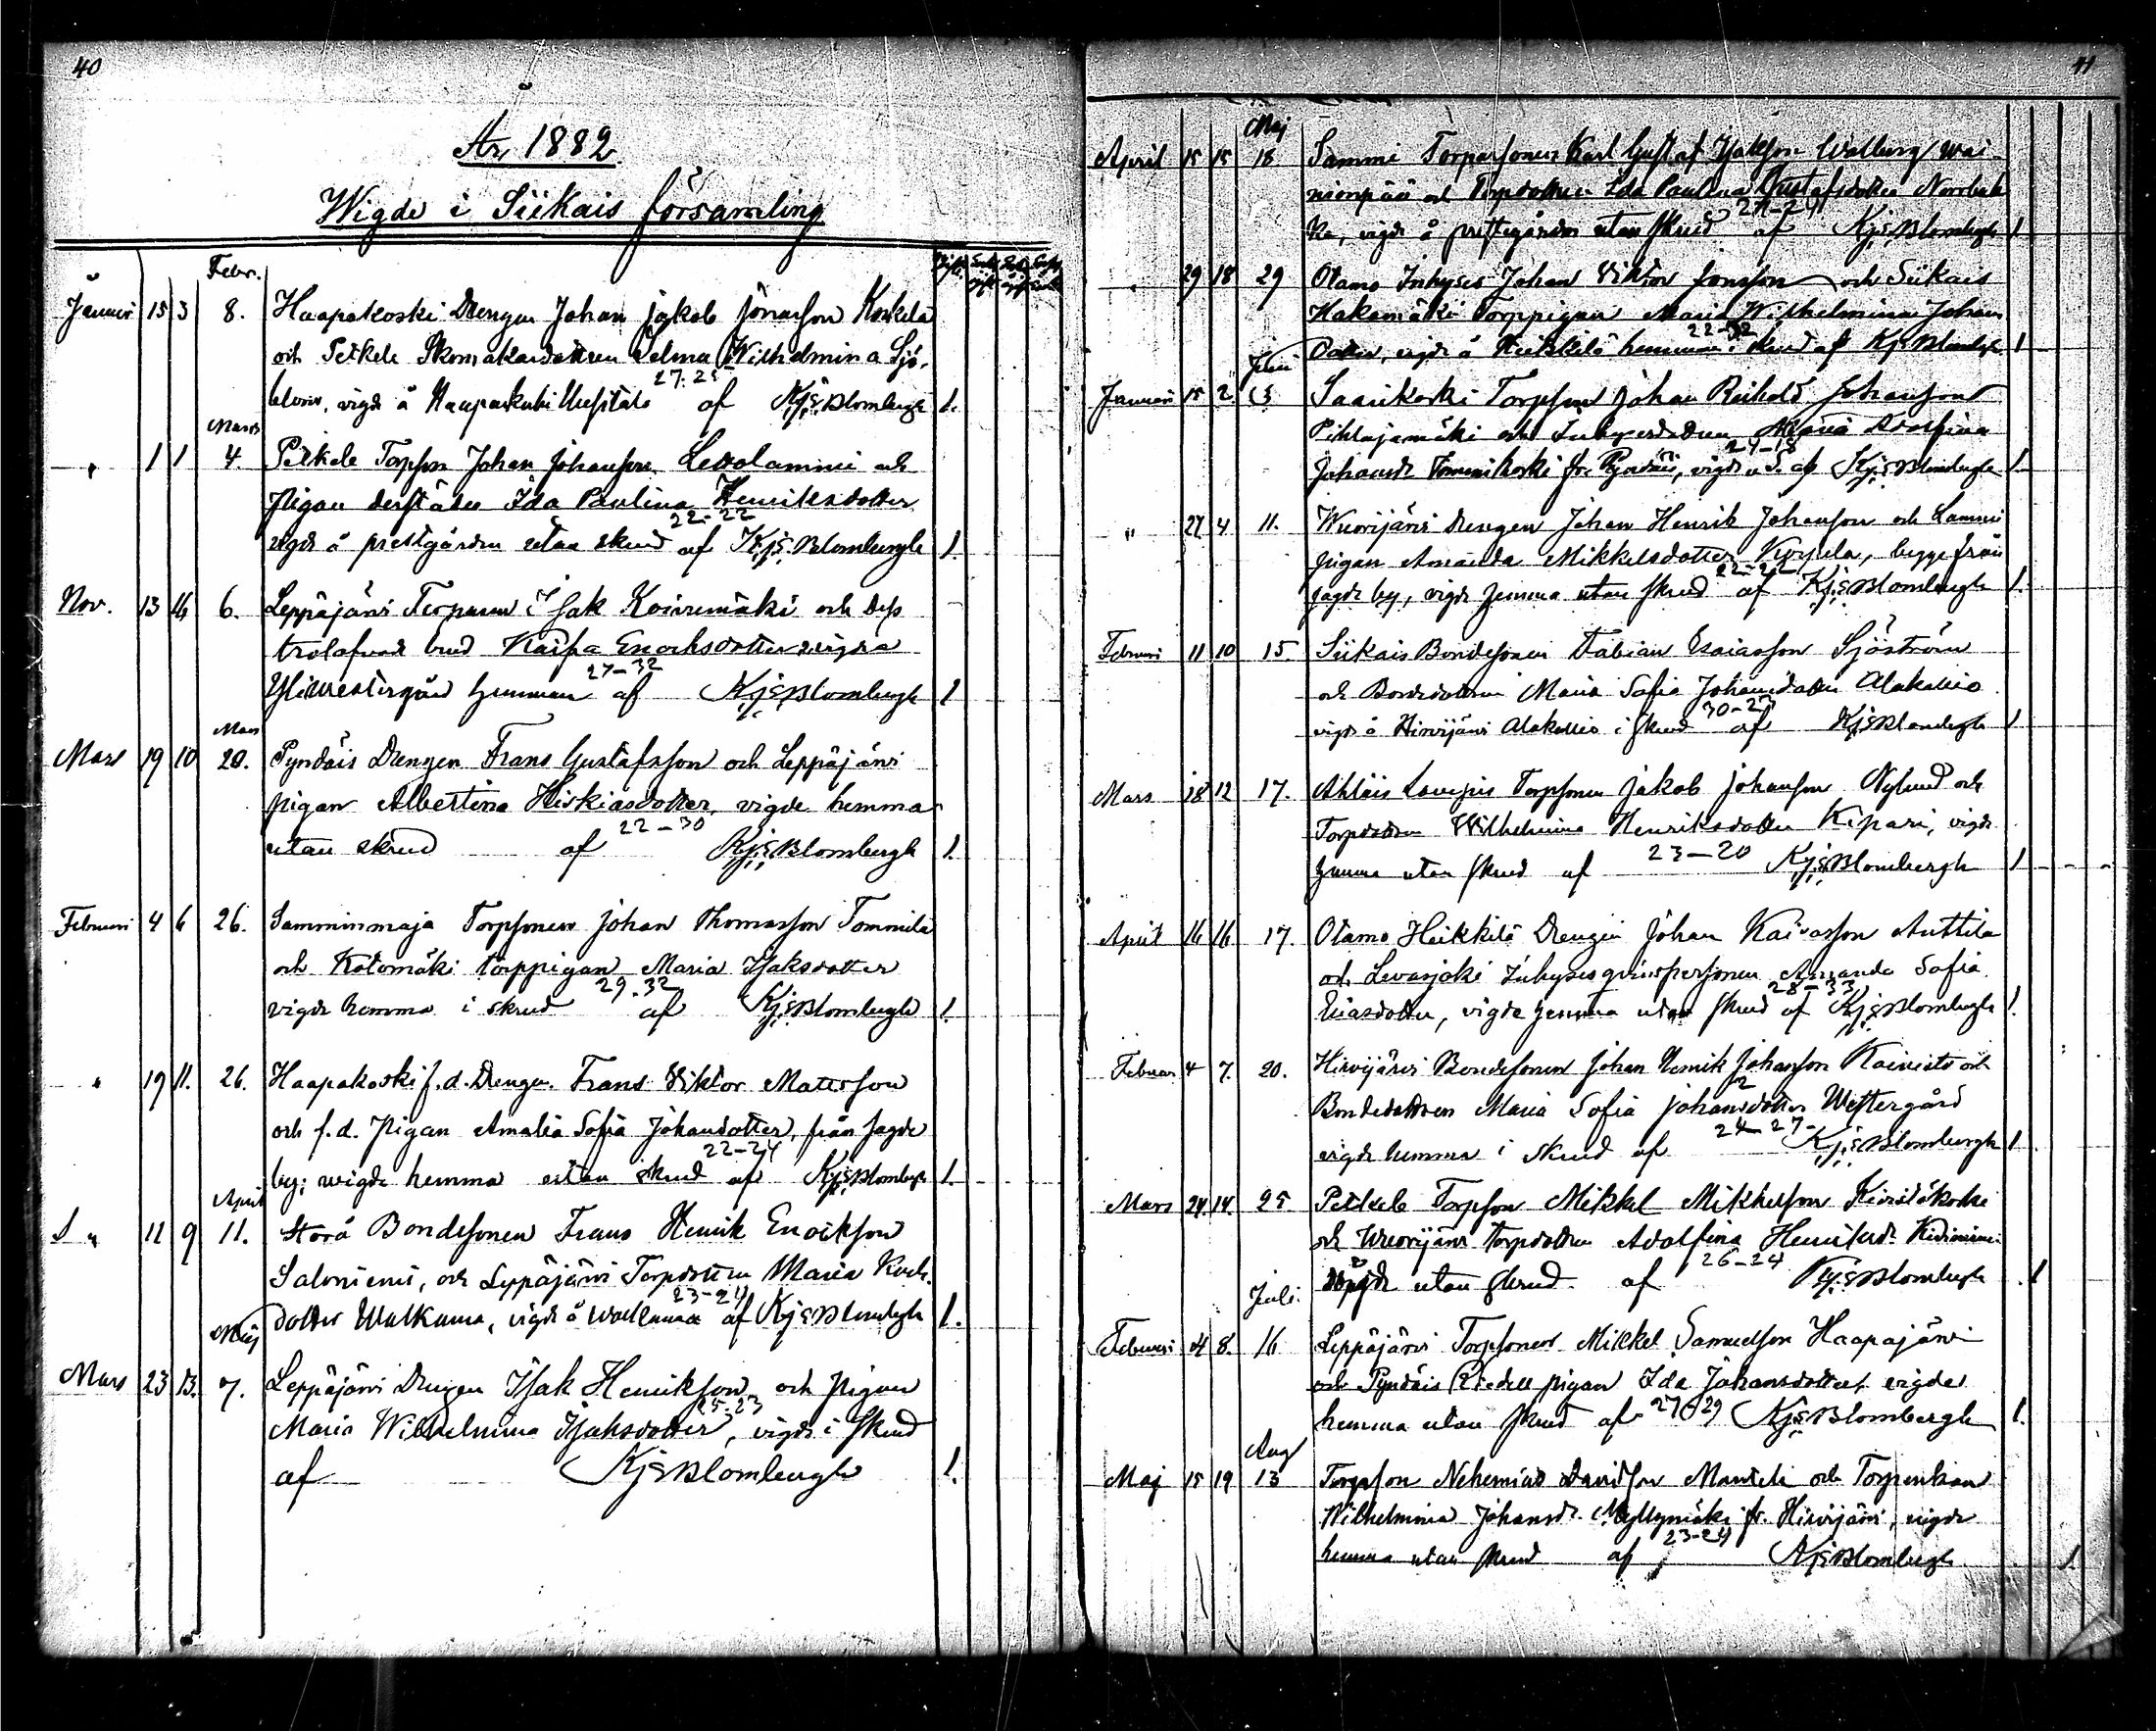 40
År 1882.
Wigde i Siikais församling
Febr.
Januari 15 3 8. Haapakoski Drengen Johan Jakob Jönasson Koskela
och Petkele Skomakaredottren Selma Wilhelmina Sjö-
blom, vigde å Haapakoski 27-25 af Kj:E:Blombergh 1.
Mars
" 1 1 4. Petkele Torpson Johan Johansson Levolammi och
Pigan derstädes Ida Paulina Henriksdotter
vigde å prestgården utan skrud 22-22 af Kj:E:Blombergh 1.
Nov. 13 16 6. Leppäjärvi Torparen Isak Koivumäki och dess
trolofvade brud Kaisa Enochsdotter vigda
Yliwestergård hemman 27-32 af Kj:E:Blombergh 1
Mars
Mars 19 10 20. Pyndäis Drengen Frans Gustafsson och Leppäjärvi
pigan Albertina Hiskiasdotter, vigde hemma
utan skrud 22-30 af Kj:E:Blombergh 1.
Februari 4 6 26. Samminmaja Torpsonen Johan Thomasson Tommila
och Kotomäki torppigan Maria Isaksdotter
vigde hemma i skrud 29-32 af Kj:E:Blombergh 1.
" 19 11. 26. Haapakoski f.d. Drengen Frans Viktor Mattsson
och f.d. Pigan Amalia Sofia Johansdotter, från sagde
by; vigde hemma utan skrud 22-24 af Kj:E:Blombergh 1.
April
" 11 9 11. Storå Bondesonen Frans Henrik Enoksson
Saloniemi, och Leppäjärvi Torpdottren Maria
dotter Walkama, vigde å Walkama 23-21 af Kj:E:Blombergh 1.
Maj
Mars 23 13. 7. Leppäjärvi Drengen Isak Henriksson och Pigan
Maria Wilhelmina Isaksdotter, 25-23 vigde i skrud
af Kj:E:Blombergh 1.
41
Maj
April 15 15 18. Sammi Torparsonen Karl Gustaf Isaksson Walberg Wai-
niönpää och Torpdottren Ida Paulina Gustafsdotter Norrbak
ka, vigde å prestgården utan skrud af Kj:E:Blombergh 1
" 29 18 29 Otamo Inhyses Johan Viktor Jonsson och Siikais
Hakamäki Torppigan Maria Wilhelmina Johans
Dotter, vigde å Heikkilä hemman i skrud af Kj:E:Blombergh 1
Juni
Januari 15 2. Saarikoski Torpson Johan Reihold Johansson
Pihlajamäki och Inhysesdottren Maria Adolfina
Johansdr Tommikoski fr. Pyndäis, vigde u.s. af Kj:E:Blombergh 1.
" 27 4 11. Wuorijärvi Drengen Johan Henrik Johansson och Lammi
pigan Amanda Mikkelsdotter Kurpela, begge från
sagde by, vigde hemma utan skrud 22-22 af Kj:E:Blombergh 1.
Februari 11 10 15. Siikais Bondesonen Fabian Esaiasson Sjöström
och Bondedottren Maria Sofia Johansdotter Alakallio
vigde å Hirvijärvi Alakallio i skrud 30-23 af Kj:E:Blombergh 1
Mars 18 12 17. Ahlais Lampis Torpsonen Jakob Johansson Nylund och
Torpdottren Wilhelmina Henriksdotter Kipari, vigde
hemma utan skrud af 23-20 Kj:E:Blombergh 1
April 16 16 17. Otamo Heikkilä Drengen Johan Anttila
och Levasjoki Inhysesqvinspersonen Amanda Sofia
Eliasdotter, vigde hemma utan skrud 28-33 af Kj:E:Blombergh 1.
Februari 4 7. 20. Hirvijärvi Bondesonen Johan Henrik Johansson Koivisto och
Bondedottren Maria Sofia Johansdotter Westergård
vigde hemma i skrud af 24-27- Kj:E:Blombergh 1.
Mars 24. 14. 25. Petkele Torpson Mikkel Mikkelsson
och Wuorijärvi Torpdottren Adolfina Henriksdr
vigde utan skrud af 26-24 Kj:E:Blombergh 1
Juli.
Februari 4 8. 16 Leppäjärvi Torpsonen Mikkel Samuelsson Haapajärvi
och Pyndäis Riedell pigan Ida Johansdotter, vigde
hemma utan skrud af 27-29 Kj:E:Blombergh 1.
Aug
Maj 15 19 13 Torpson Nehemias Davidson Mantela och Torpenkan
Wilhelmina Johansdr. Myllymäki fr. Hirvijärvi, vigde
hemma utan skrud af 23-24 Kj:E:Blombergh 1.